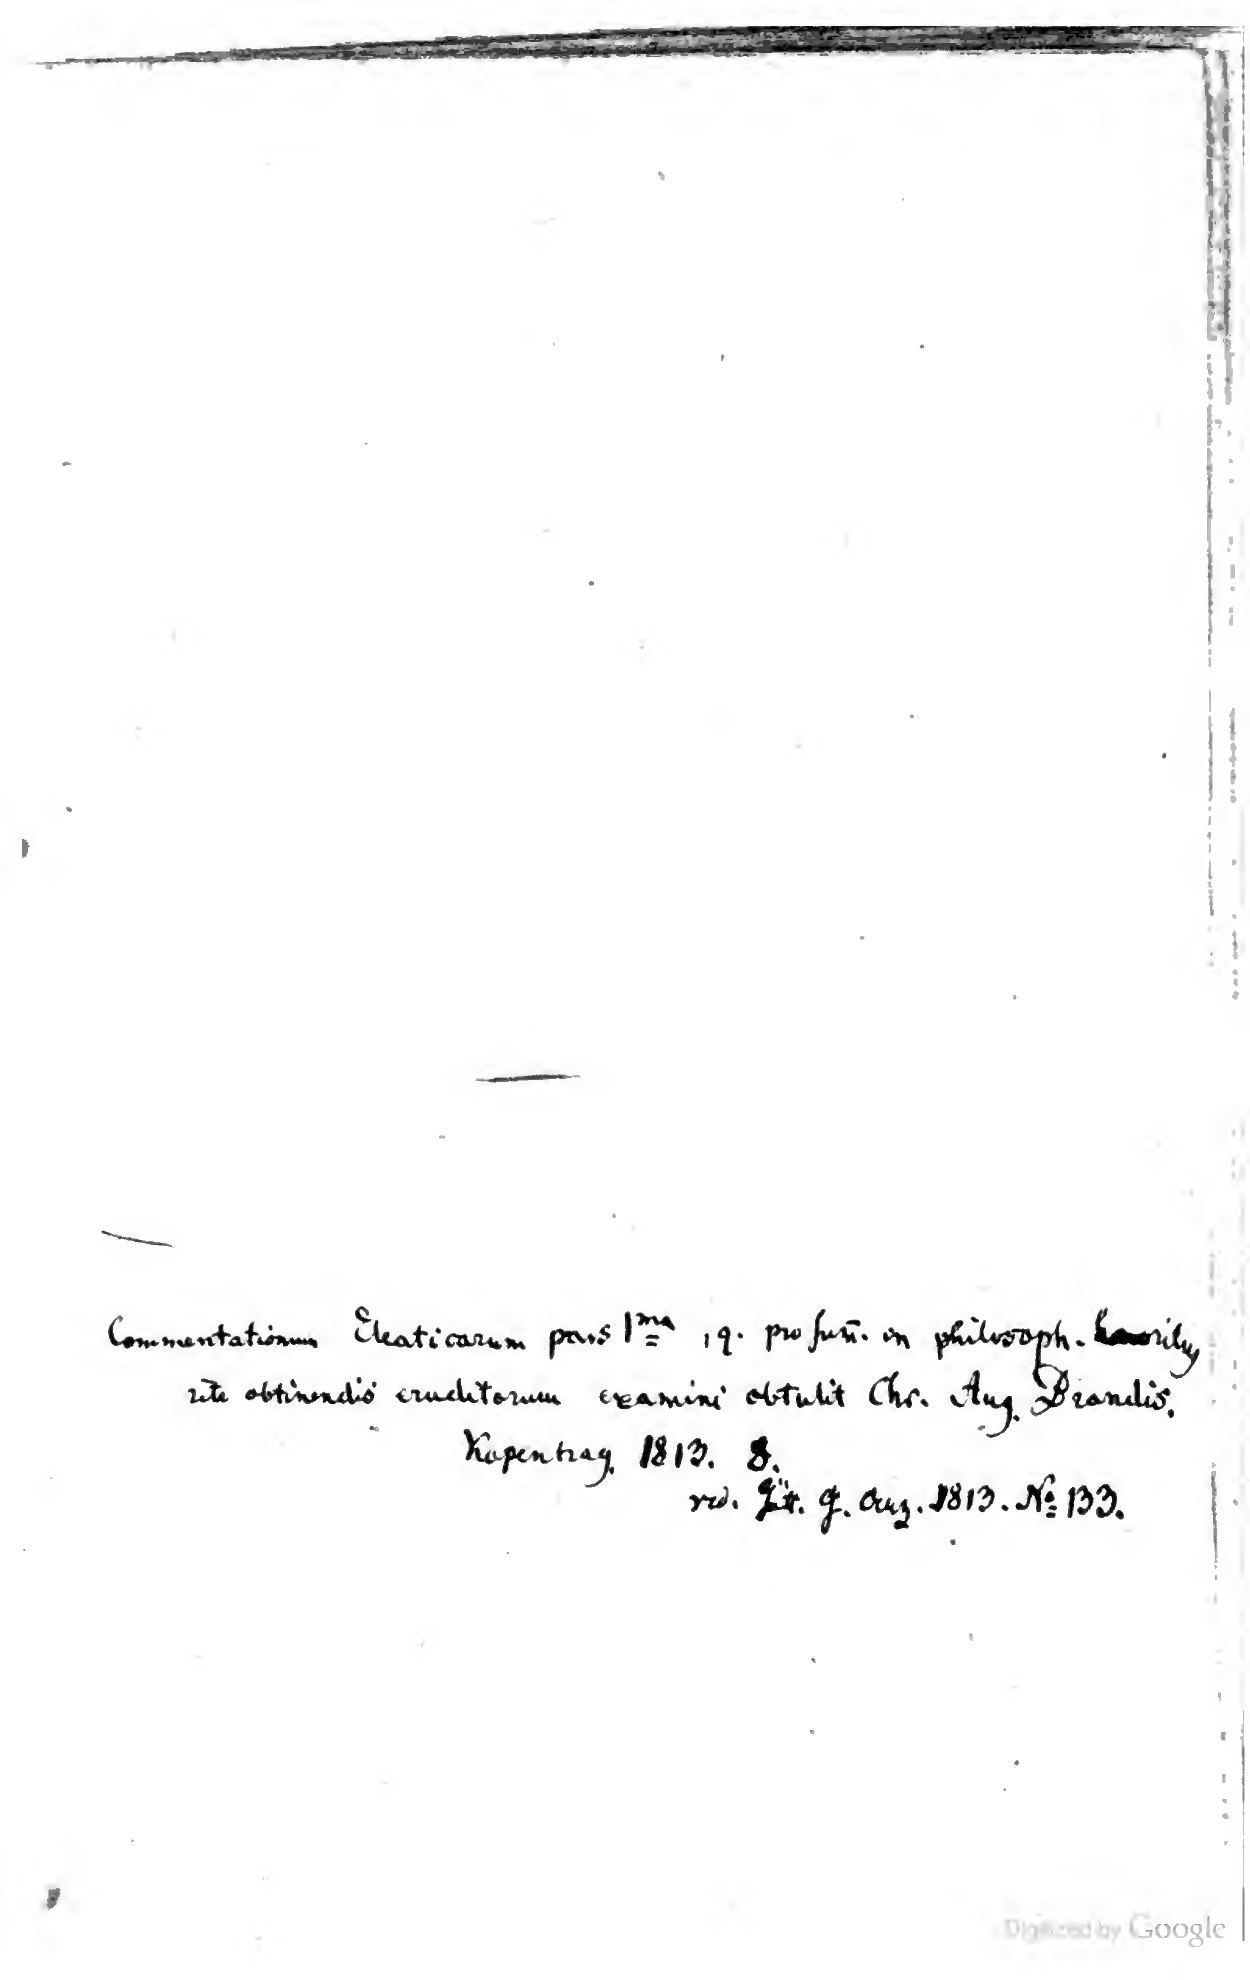 Commentationum Eleaticarum pars 1ma, q. pro sum̄. in philosoph. honoribus
rite obtinendis eruditorum examini obtulit Chr. Aug. Brandis.
Kopenhag. 1813. 8.
Gött. g. Anz. 1813. No 133.
Digitized by Google